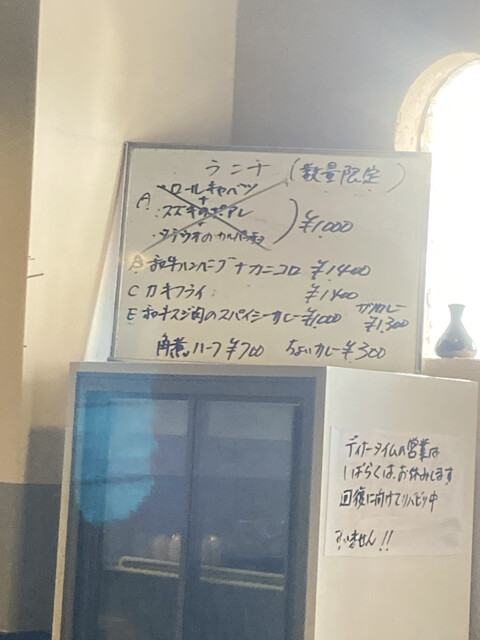 ランチ (数量限定)
A ・ロールキャベツ
+
・スズキのポアレ
+
・タラウオのカルパッチョ
¥1000
B 和牛ハンバーグ + カニコロ ¥1400
C カキフライ ¥1400
E 和牛スジ肉のスパイシーカレー ¥1000 カツカレー ¥1,300
角煮ハーフ ¥700 ちょいカレー ¥300
ディナータイムの営業は
しばらくは、お休みします
回復に向けてリハビリ中
すいません!!